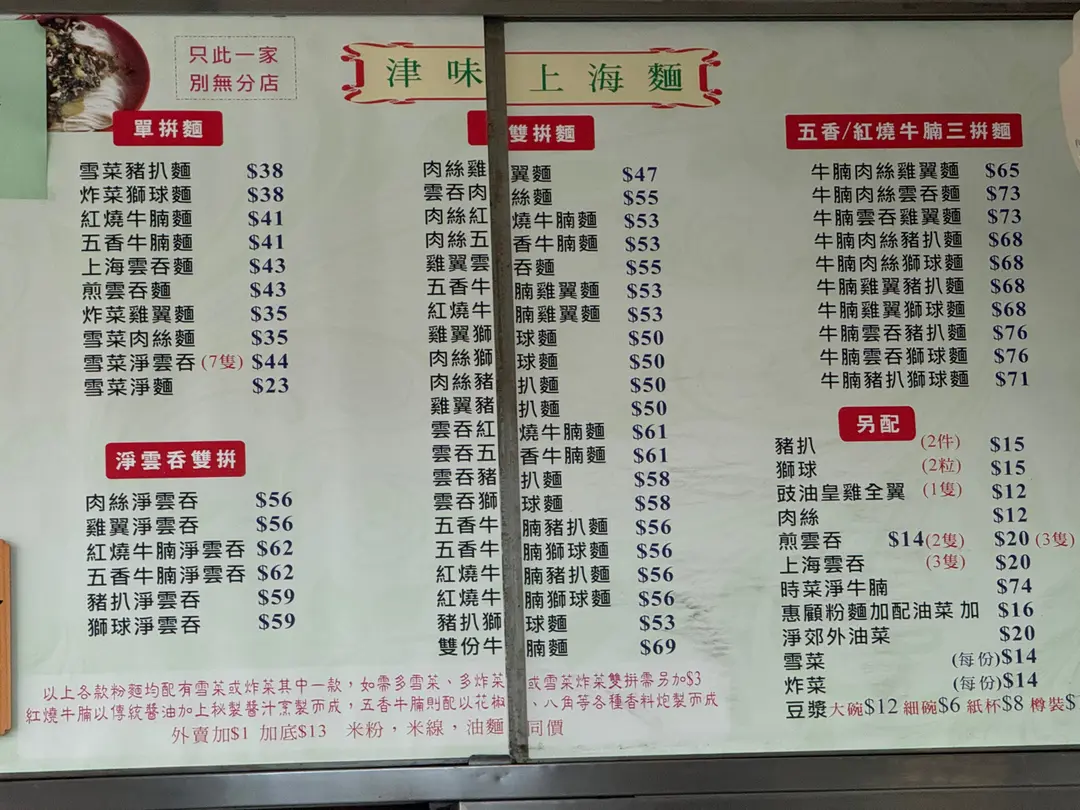 只此一家
別無分店
津味上海麵
單拼麵
雪菜豬扒麵 $38
炸菜獅球麵 $38
紅燒牛腩麵 $41
五香牛腩麵 $41
上海雲吞麵 $43
煎雲吞麵 $43
炸菜雞翼麵 $35
雪菜肉絲麵 $35
雪菜淨雲吞(7隻) $44
雪菜淨麵 $23
淨雲吞雙拼
肉絲淨雲吞 $56
雞翼淨雲吞 $56
紅燒牛腩淨雲吞 $62
五香牛腩淨雲吞 $62
豬扒淨雲吞 $59
獅球淨雲吞 $59
雙拼麵
肉絲雞翼麵 $47
雲吞肉絲麵 $55
肉絲紅燒牛腩麵 $53
肉絲五香牛腩麵 $53
雞翼雲吞麵 $55
五香牛腩雞翼麵 $53
紅燒牛腩雞翼麵 $53
雞翼獅球麵 $50
肉絲獅球麵 $50
肉絲豬扒麵 $50
雞翼豬扒麵 $50
雲吞紅燒牛腩麵 $61
雲吞五香牛腩麵 $61
雲吞豬扒麵 $58
雲吞獅球麵 $58
五香牛腩豬扒麵 $56
五香牛腩獅球麵 $56
紅燒牛腩豬扒麵 $56
紅燒牛腩獅球麵 $56
豬扒獅球麵 $53
雙份牛腩麵 $69
五香/紅燒牛腩三拼麵
牛腩肉絲雞翼麵 $65
牛腩肉絲雲吞麵 $73
牛腩雲吞雞翼麵 $73
牛腩肉絲豬扒麵 $68
牛腩肉絲獅球麵 $68
牛腩雞翼豬扒麵 $68
牛腩雞翼獅球麵 $68
牛腩雲吞豬扒麵 $76
牛腩雲吞獅球麵 $76
牛腩豬扒獅球麵 $71
另配
豬扒 (2件) $15
獅球 (2粒) $15
豉油皇雞全翼 (1隻) $12
肉絲 $12
煎雲吞 $14(2隻) $20(3隻)
上海雲吞 (3隻) $20
時菜淨牛腩 $74
惠顧粉麵加配油菜 加 $16
淨郊外油菜 $20
雪菜 (每份)$14
炸菜 (每份)$14
豆漿大碗$12 細碗$6 紙杯$8 樽裝$
以上各款粉麵均配有雪菜或炸菜其中一款，如需多雪菜、多炸菜或雪菜炸菜雙拼需另加$3
紅燒牛腩以傳統醬油加上秘製醬汁烹製而成，五香牛腩則配以花椒、八角等各種香料炮製而成
外賣加$1 加底$13 米粉，米線，油麵同價